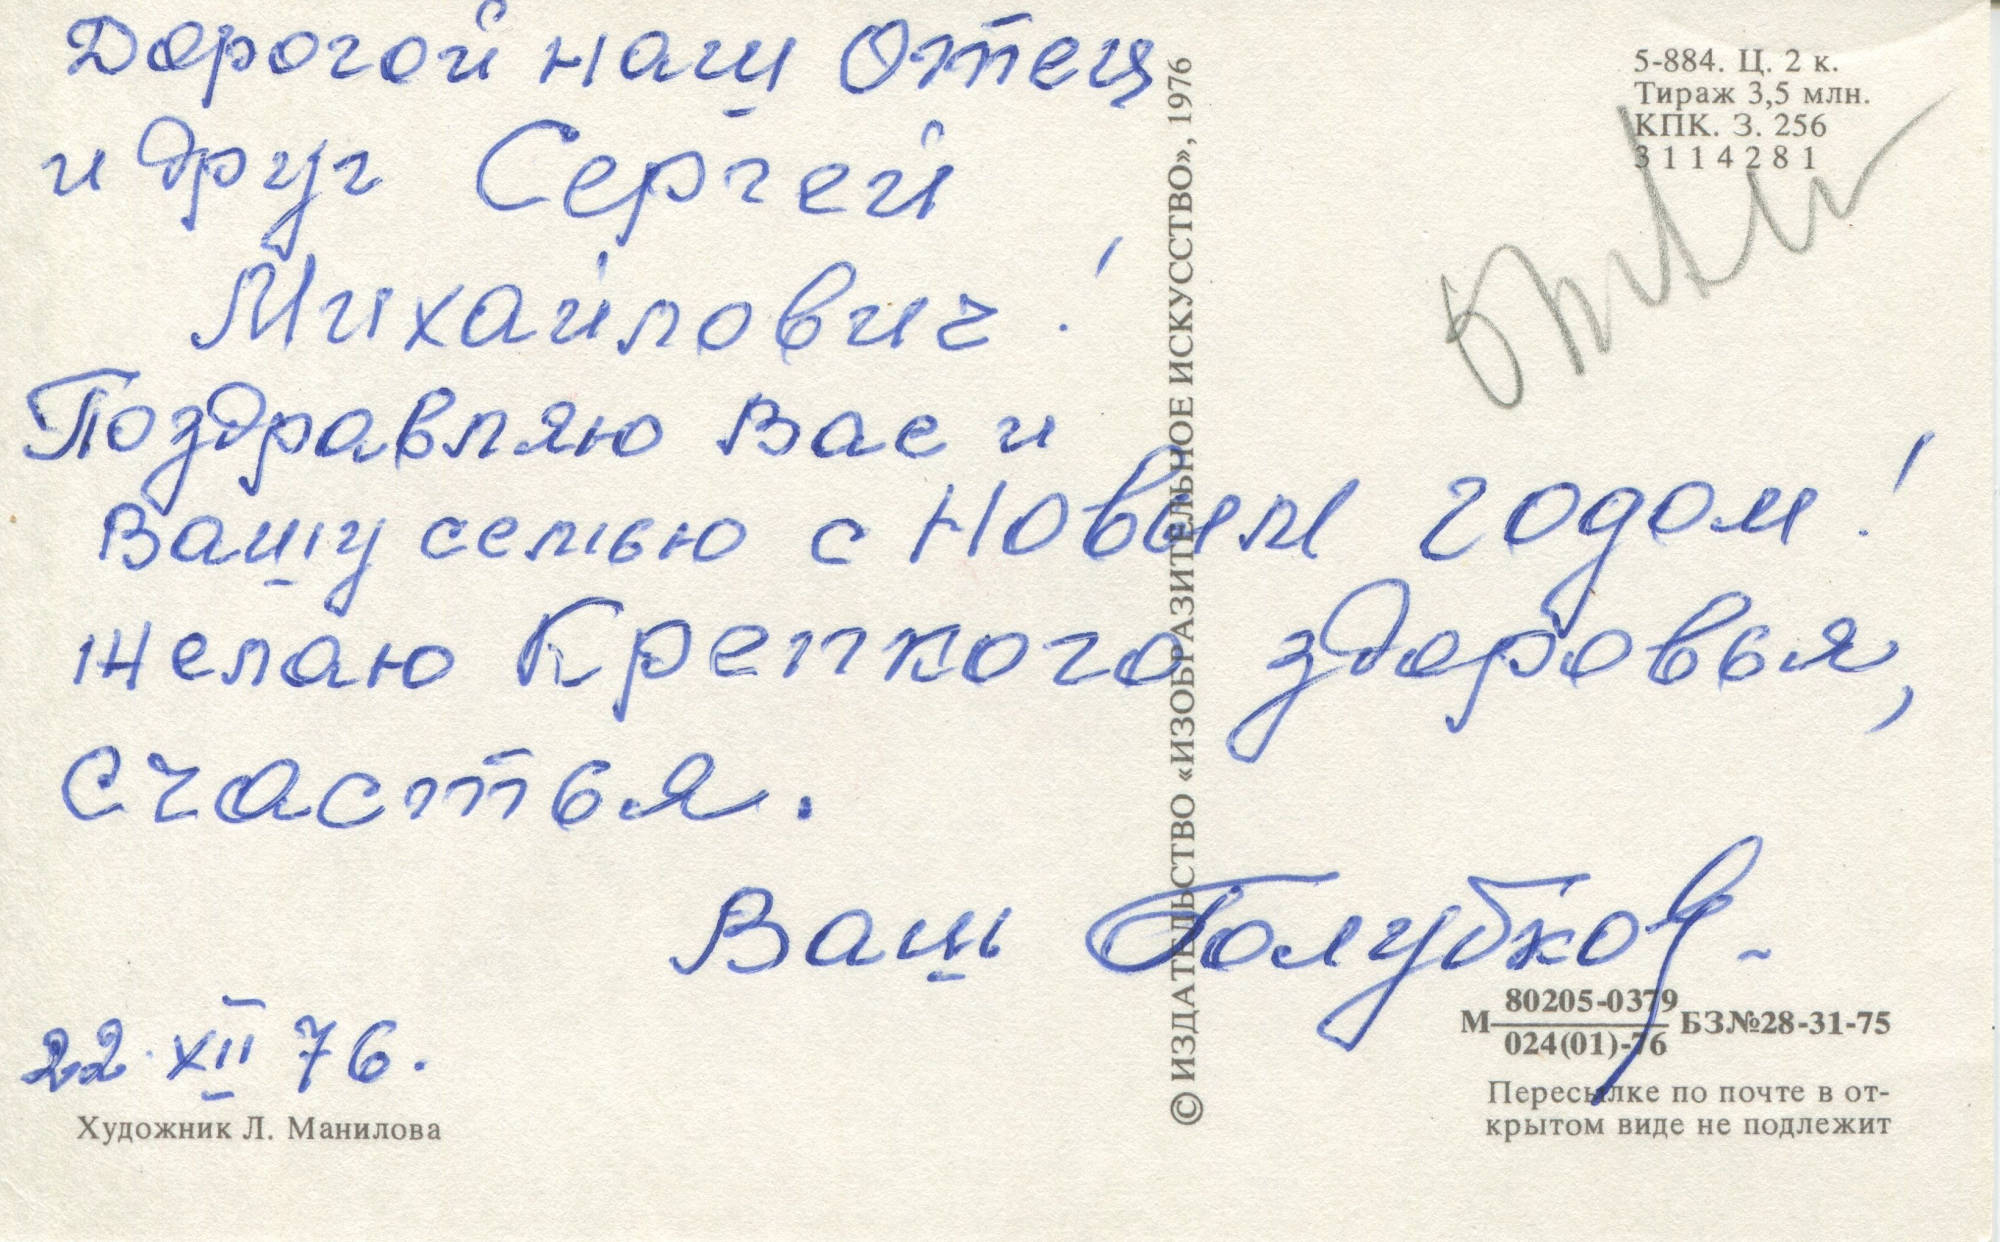 Дорогой наш Отец
и друг Сергей
Михайлович!
Поздравляю Вас и
Вашу семью с Новым годом!
Желаю Крепкого здоровья,
счастья.
Ваш Голубков
22 XII 76.
Художник Л. Манилова
© ИЗДАТЕЛЬСТВО «ИЗОБРАЗИТЕЛЬНОЕ ИСКУССТВО», 1976
5-884. Ц. 2 к.
Тираж 3,5 млн.
КПК. З. 256
3114281
М 80205-0379
024(01)-76 БЗ№28-31-75
Пересылке по почте в от-
крытом виде не подлежит